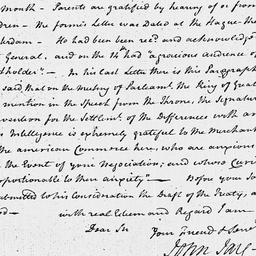 month - Parents are gratified by hearing of or from
dren - the former Letter was Dated at the Hague the
terdam - He had been rec.d and acknowledge
General, and on the 14th had "a gracious audience of
dholder" - In his last Letter there is this Paragraph
said that on the meeting of Parliamt. the King of Great
mention in the Speech from the Throne, the Signature
vention for the Settlemt. of the Differences with
Intelligence is extremely grateful to the Merchant
the american Commerce here, who are anxious
the Event of your Negociation; and whose Curio
oportionable to their anxiety" - Before your
submitted to his Consideration the Draft of the Treaty, a
with real Esteem and Regard I am -
Dear Sir your Friend & Serv
JOHN JAY -